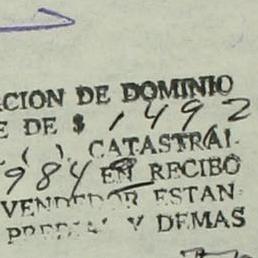 CION DE DOMINIO
E DE $ 1492
CATASTRAL
984 EN RECIBO
VENDEDOR ESTAN
PREDIAL Y DEMAS